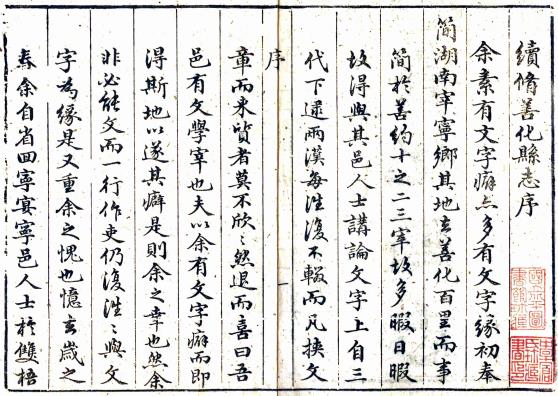 續脩善化縣志序
余素有文字癖亦多有文字緣初奉
簡湖南宰寧鄉其地去善化百里而事
簡於善約十之二三宰故多暇日暇
故得與其邑人士講論文字上自三
代下逮兩漢每往復不輟而凡挾文
序
章而來質者莫不欣〻然退而喜曰吾
邑有文學宰也夫以余有文字癖而即
得斯地以遂其癖是則余之幸也然余
非必能文而一行作吏仍復往〻與文
字為緣是又重余之愧也憶去歲之
春余自省回寧宴寧邑人士於雙梧